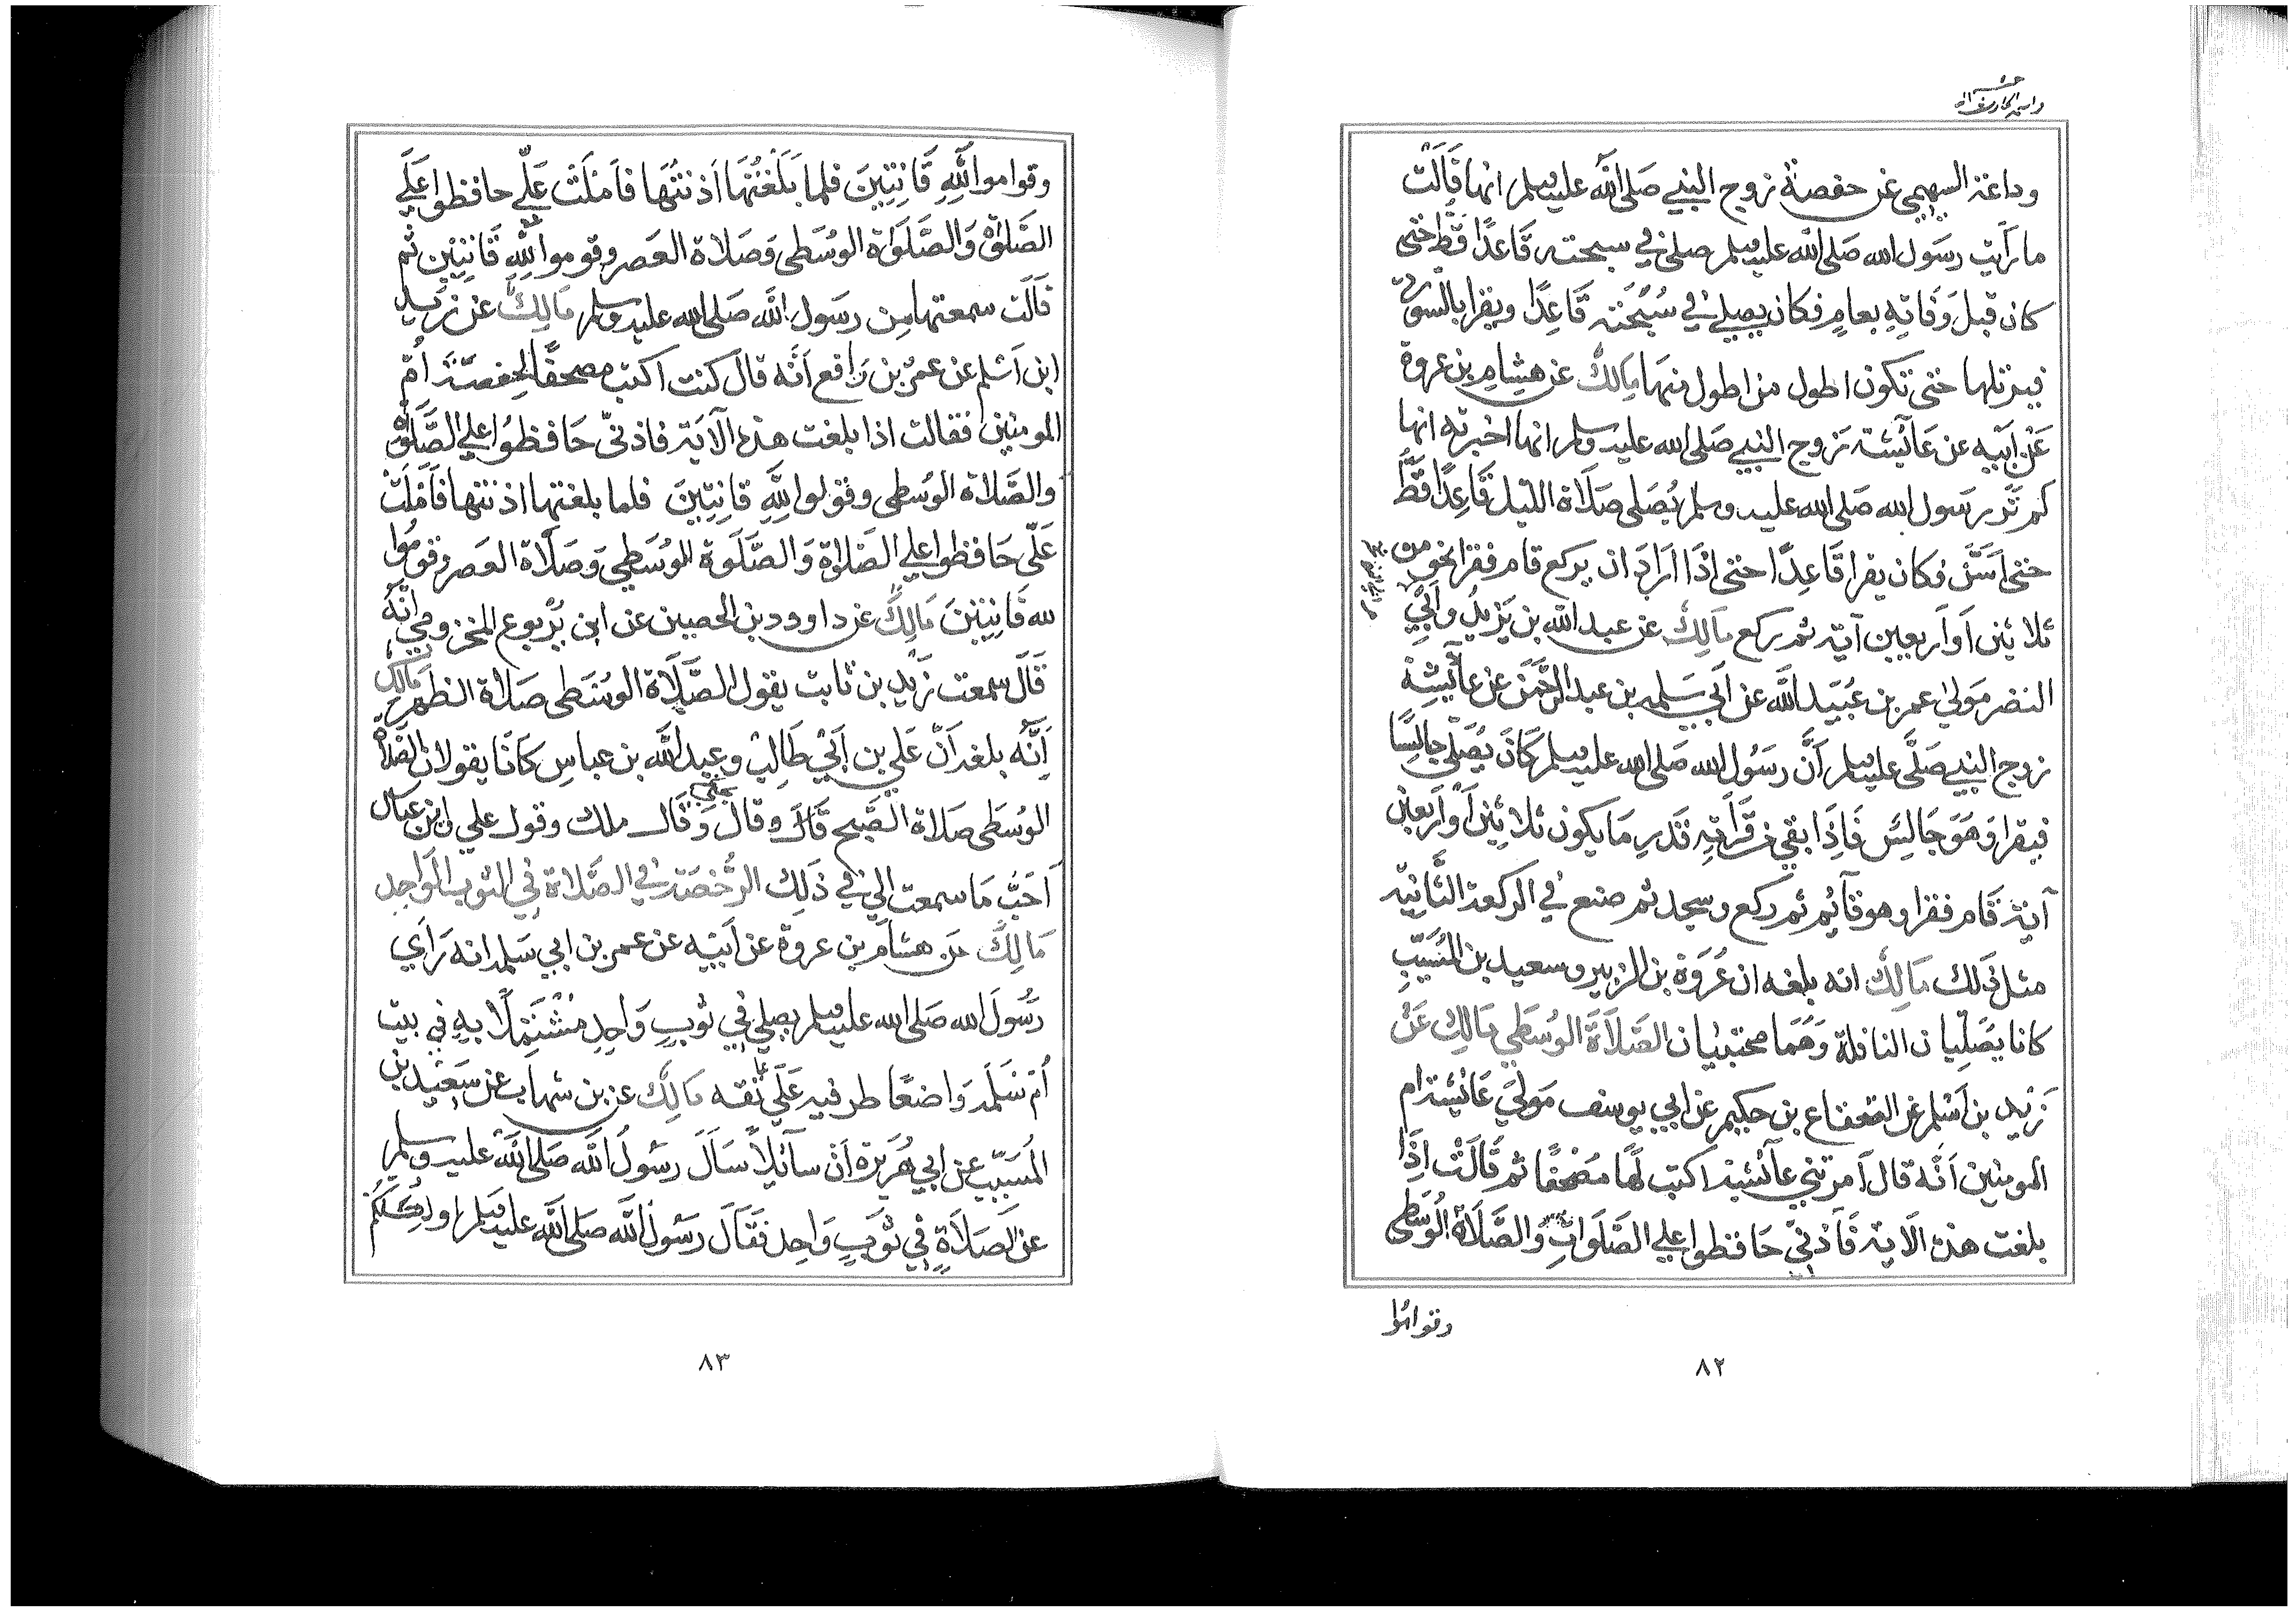 وداعة السهمي عن حفصة زوج النبي صَلى الله عليه وسلم انها قَالَت
ما رَأيت رسَول الله صَلى الله عليه وسلم صلى في سبحته قَاعدًا قطّ حتى
كان قبلَ وَفَاتِهِ بعامٍ فكان يصلي في سُبْحَتِه قَاعِدًا ويقرا بالسورة
فيرتلها حتى تكون اطول من اطول منهَا مَالِكٌ عن هشامِ بن عروة
عَنْ اَبيه عن عَآئشة زوج النبي صَلى الله عليه وسلم انها اخبرته انها
لم تَر رسَول الله صَلى الله عليه وسلم يُصَلى صَلَاة الليل قَاعِدًا قَطُّ
حتى اَسَنَّ فكان يقرا قَاعِدًا حتى اذَا اَرَادَ ان يركع قام فقرا نحو من
ثلاثين اَو اَربعين آية ثم ركع مَالِكٌ عن عبد الله بن يَزيدَ وَاَبي
النضر مَولى عمر بن عُبَيد الله عن اَبي سَلمه بن عبد الرَّحْمَن عن عآئشة
زوج النبي صَلَّى عليه وسلم اَنَّ رسَُول الله صَلى الله عليه وسلم كَانَ يُصَلي جالِسًا
فيقرا وَهوَ جَالِسٌ فَاِذَا بقي من قَرَآتِهِ قَدر مَا يكون ثلاثين اَو اَربعين
آية قَام فقرا وهو قآئم ثم ركع وسجد ثم صنع في الركعة الثَّانية
مثل ذَلك مَالِكٌ انه بلغه ان عُروَة بن الزبير وسعيد بن المُسَيّب
كانا يصَلِّيان النافلة وَهُمَا محتبيان الصَلاَة الوُسَطي مَالِك عَنْ
زَيْد بن اَسْلم عن القعقاع بن حكيم عن ابي يوسف مَولَى عَائشة ام
المومنين اَنَّه قال اَمرتني عآئشة اكتب لَها مُصْحَفًا ثم قَالَتْ اِذَا
بلغت هذه الاَيه فَآذنِّي حَافظوا علي الصَّلَوَاتِ وَالصَّلاَة الوُسطى
وقوموا
٨٢
وقواموا لله قَانِتِينَ فلما بَلَغْتُهَا آذنتُهَا فاَملَت عَلَيّ حافظوا عَلَي
الصَّلَوٰة وَالصَّلَوَاة الوُسَطى وَصَلاة العَصر وقوموا لِلهِ قَانِتِين ثم
قَالَت سمعتها من رسَول الله صَلى الله عليه وسلم مَالِكٌ عن زَيد
ابن اَسْلم عن عمرو بن رَافع اَنَّه قالَ كنت اكتب مصحفًا لحفصَة اُمّ
المومنين فقالت اذا بلغت هذه الآيَة فاذنّي حَافظُوا علي الصَّلَوٰة
والصَّلاة الوُسْطى وقولوا لِلّهِ قانِتِينَ فلما بلغتها اذنتها فَاَمْلَتْ
عَلَيّ حَافظوا علي الصَلاوٰة وَالصَّلَوة الوُسَطي وَصَلاَة العَصر وَقومُوا
لله قَانِتِينَ مَالِكٌ عن داوود بن الحصين عن ابن يَرْبوع المخزومي اَنَّه
قَالَ سمعت زَيْد بن ثابت يقول الصَّلاَة الوُسَطى صَلاة الظهر مَالِك
اَنَّه بلغه اَنَّ عَلي بن اَبي طَالِبٍ وعبد الله بن عباسٍ كَانَا يقولان الصَّلاة
الوُسَطَى صَلاة الصَّبح قَالَ وقال وَقَال ملك وقول علي وابن عباس
اَحَبُّ مَا سمعت الي في ذَلِكَ الرُّخصَة في الصَّلاة في الثوب الوَاحِدِ
مَالِكٌ عن هشام بن عروة عن اَبيه عن عمر بن ابي سَلمه انه رَاَي
رَسُولَ الله صَلى الله عليه وسلم يصلي في ثوبٍ وَاحِدٍ مُشْتَمِلًا بهِ في بيت
اُم سَلَمَه وَاضعًا طرفيه عَلَى عَاتقه مَالِكٌ عن بن شهاب عن سَعيد بن
المُسَيّب عن ابي هُرَيرَة اَن سآئلاً سَاَلَ رسُولَ الله صَلى الله عليه وسلم
عن الصَلاَة في ثوبٍ وَاحد فَقالَ رسُولُ الله صَلى الله عليه وسلم اَوَ لِكُلِّكُمْ
٨٣